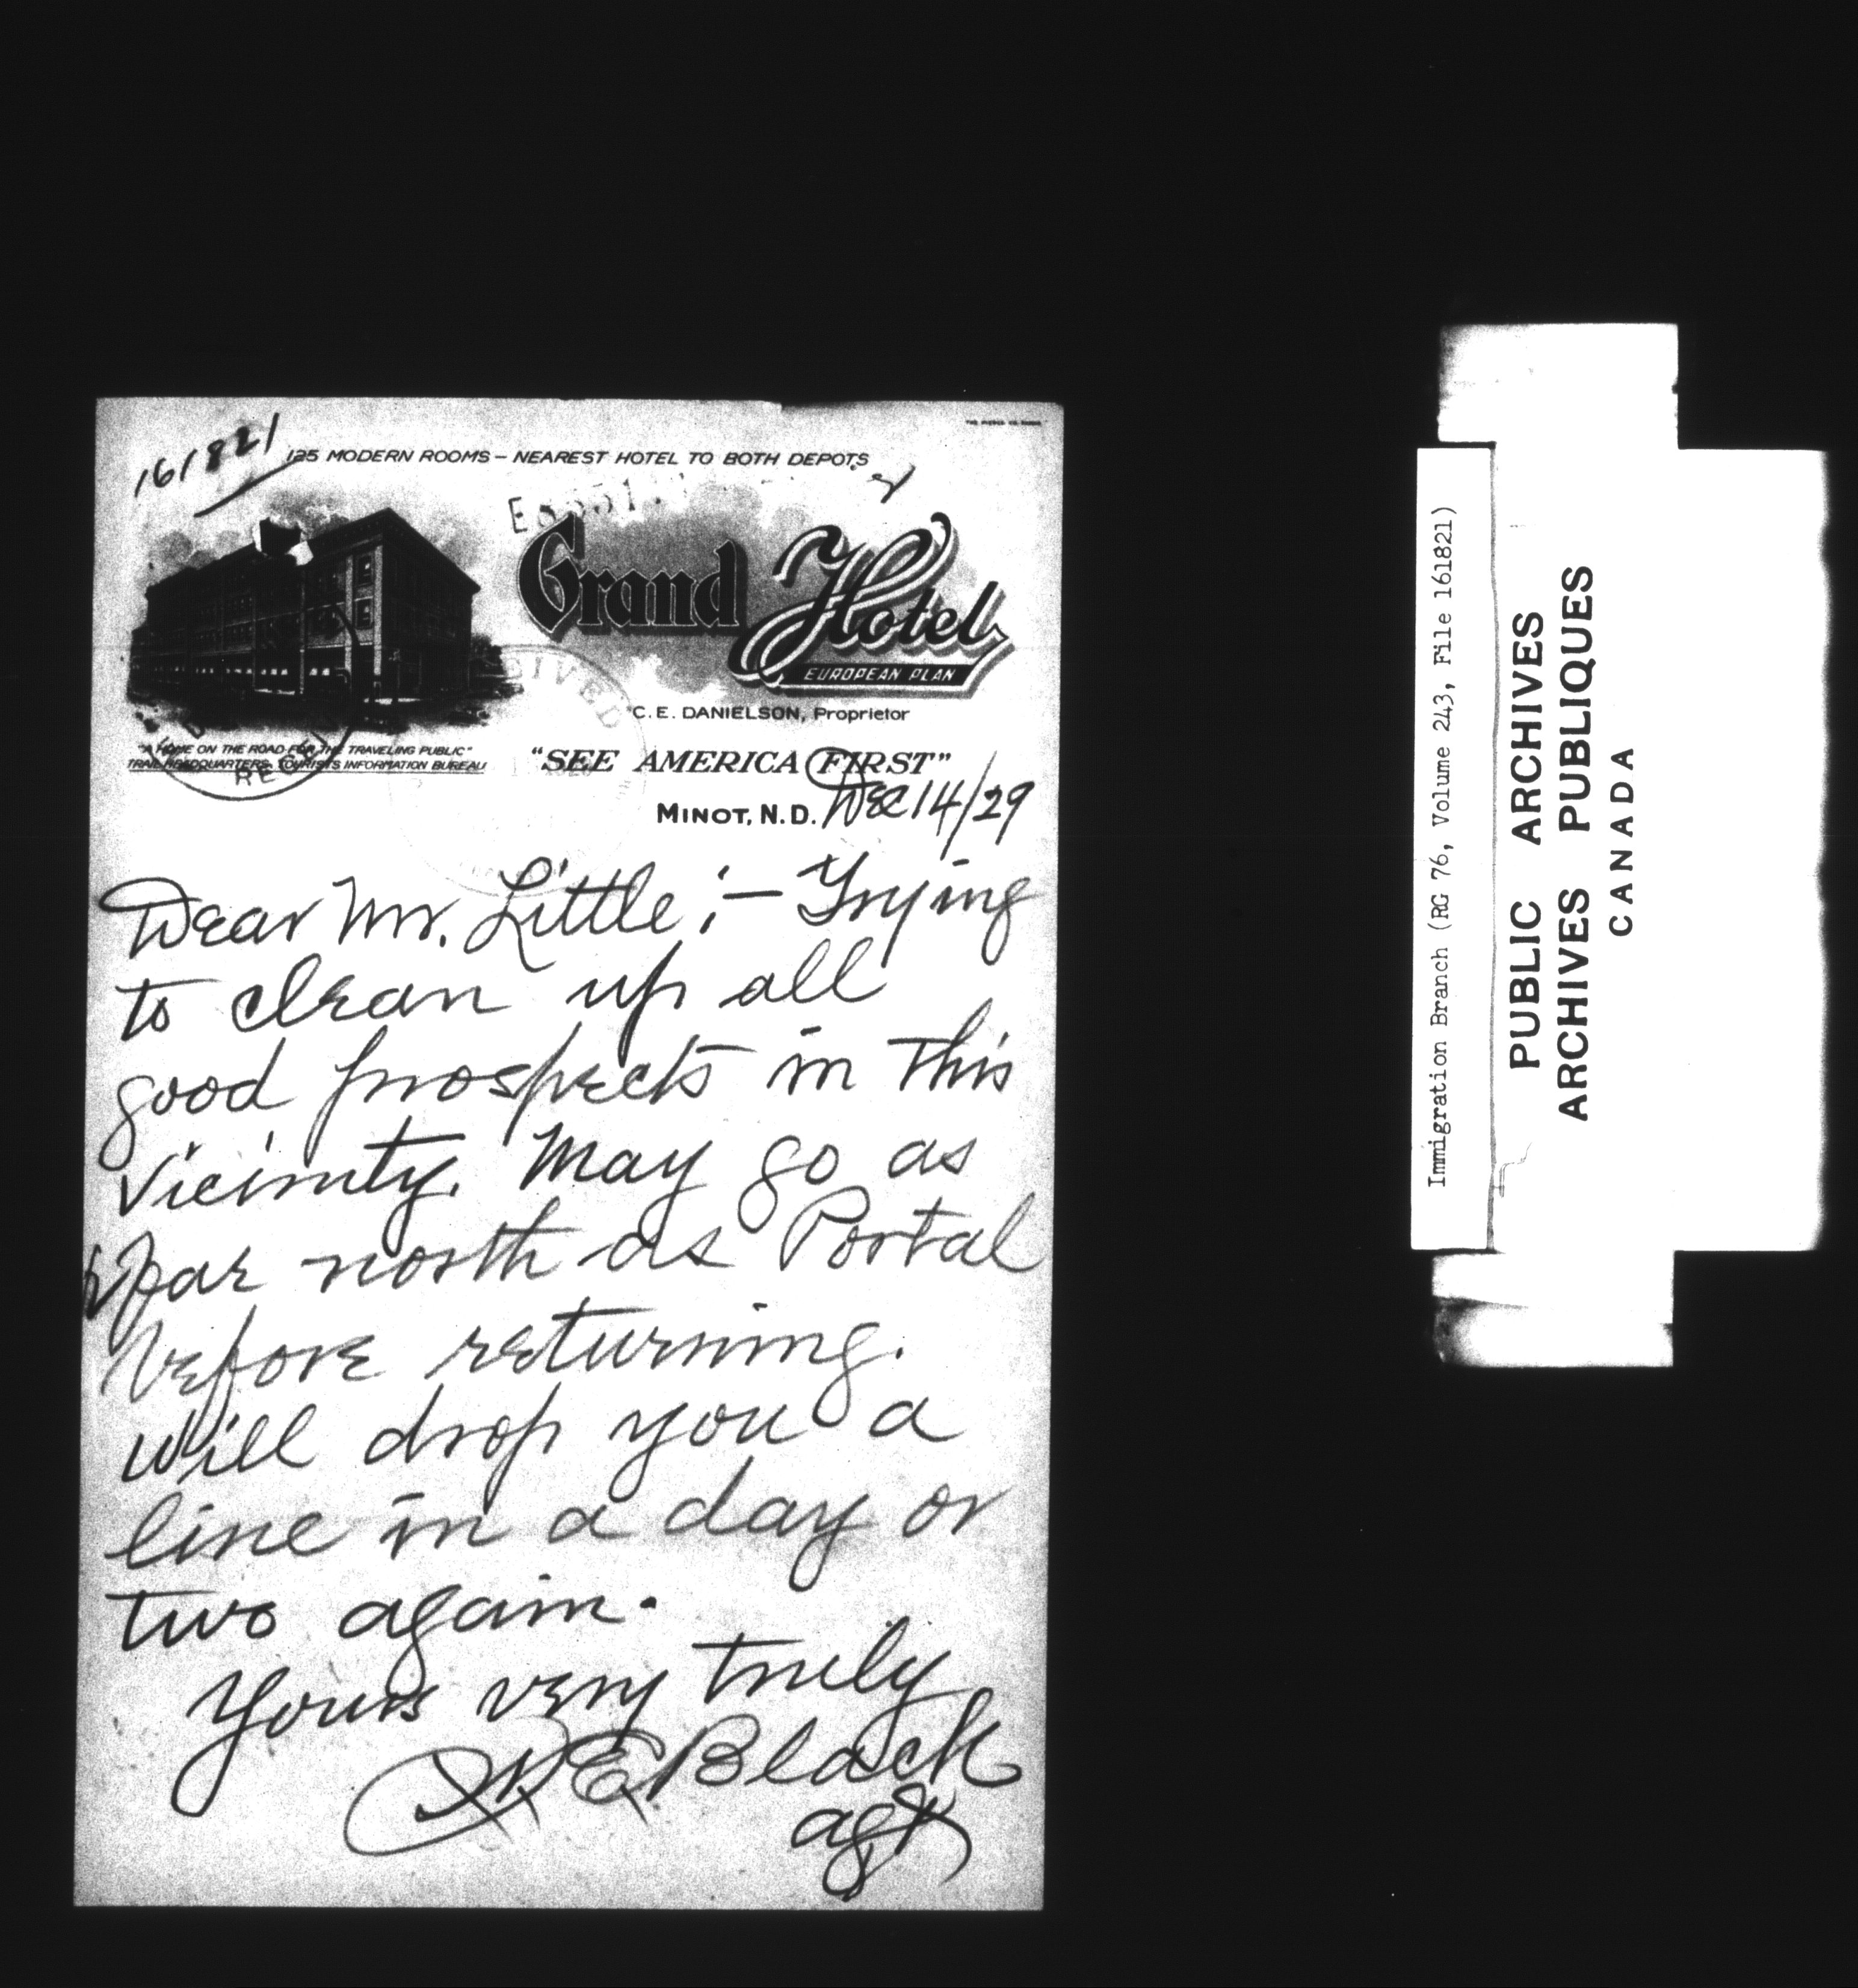 161821
125 MODERN ROOMS — NEAREST HOTEL TO BOTH DEPOTS
Grand Hotel
EUROPEAN PLAN
C. E. DANIELSON, Proprietor
"A HOME ON THE ROAD FOR THE TRAVELING PUBLIC"
TRAIL HEADQUARTERS, TOURISTS INFORMATION BUREAU
"SEE AMERICA FIRST"
MINOT, N. D. Dec 14/29
Dear Mr. Little :— Trying
to clean up all
good prospects in this
vicinity. May go as
far north as Portal
before returning.
Will drop you a
line in a day or
two again.
Yours very truly
E Black
agt
Immigration Branch (RG 76, Volume 243, File 161821)
PUBLIC ARCHIVES
ARCHIVES PUBLIQUES
CANADA